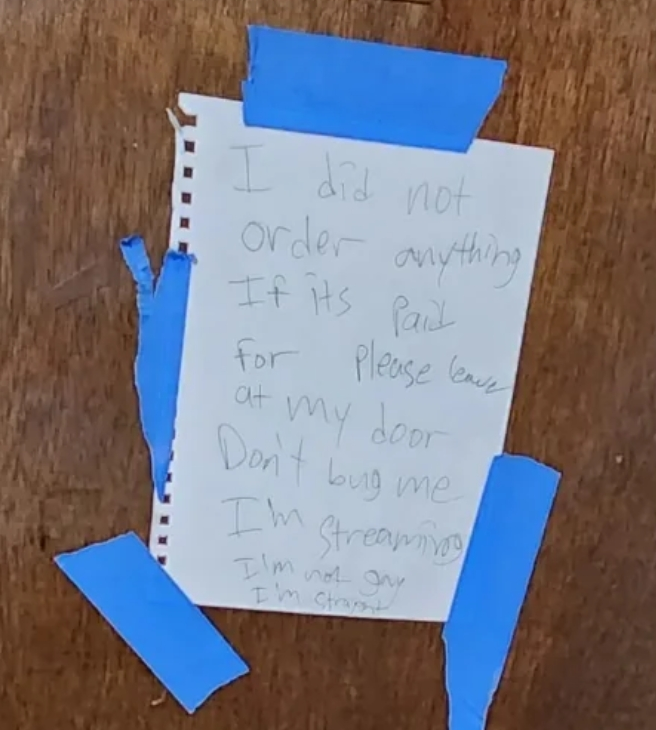 I did not
order anything
If its Paid
for please leave
at my door
Don't bug me
I'm Streaming
I'm not gay
I'm